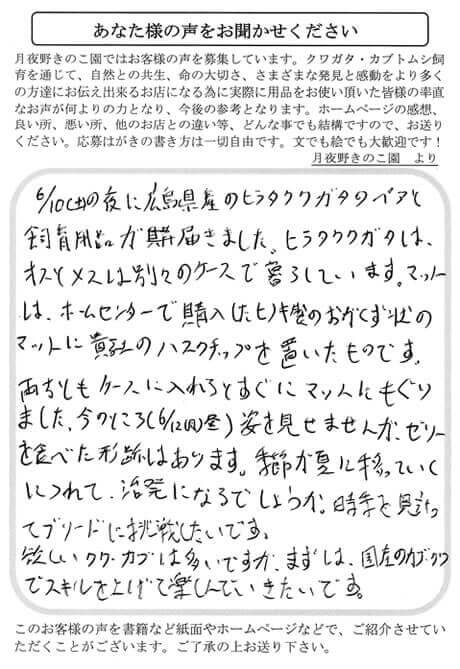 あなた様の声をお聞かせください
月夜野きのこ園ではお客様の声を募集しています。クワガタ・カブトムシ飼
育を通じて、自然との共生、命の大切さ、さまざまな発見と感動をより多く
の方達にお伝え出来るお店になる為に実際に用品をお使い頂いた皆様の率直
なお声が何よりの力となり、今後の参考となります。ホームページの感想、
良い所、悪い所、他のお店との違い等、どんな事でも結構ですので、お送り
ください。応募はがきの書き方は一切自由です。文でも絵でも大歓迎です！
月夜野きのこ園　より
6/10(土)の夜に広島県産のヒラタクワガタのペアと
飼育用品が届きました。ヒラタクワガタは、
オスとメスは別々のケースで暮らしています。マット
は、ホームセンターで購入したヒノキ製のおがくず状の
マットに貴社のハスクチップを置いたものです。
両方ともケースに入れるとすぐにマットにもぐり
ました。今のところ(6/12(月)昼)姿を見せませんが、ゼリー
を食べた形跡はあります。季節が夏に移っていく
につれて、活発になるでしょうか。時季を見計っ
てブリードに挑戦したいです。
欲しいクワ・カブは多いですが、まずは、国産のカブ・クワ
でスキルを上げて楽しんでいきたいです。
このお客様の声を書籍など紙面やホームページなどで、ご紹介させてい
ただくことがございます。ご了承の上お送り下さい。